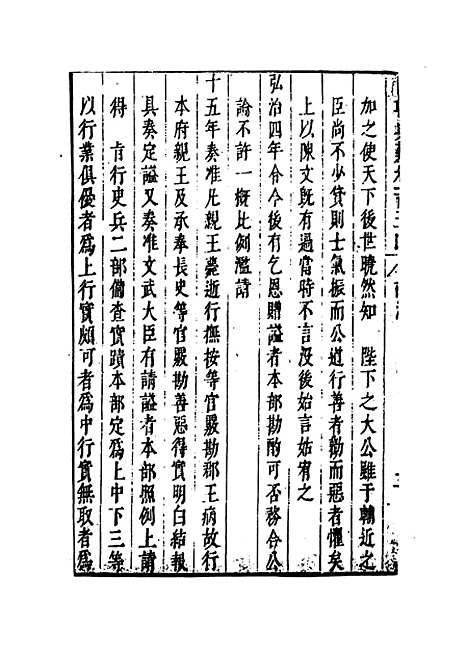 加之使天下後世曉然知　陛下之大公雖于輔近之
臣尚不少貸則士氣振而公道行善者勸而惡者懼矣
上以陳文既有過當時不言沒後始言姑宥之
弘治四年令今後有乞恩贈謚者本部勘酌可否務合公
論不許一槩比例濫請
十五年奏准凡親王薨逝行撫按等官嚴勘郡王病故行
本府親王及承奉長史等官嚴勘善惡得實明白結報
具奏定謚又奏准文武大臣有請謚者本部照例上請
得　旨行吏兵二部備查實蹟本部定爲上中下三等
以行業俱優者爲上行實頗可者爲中行實無取者爲